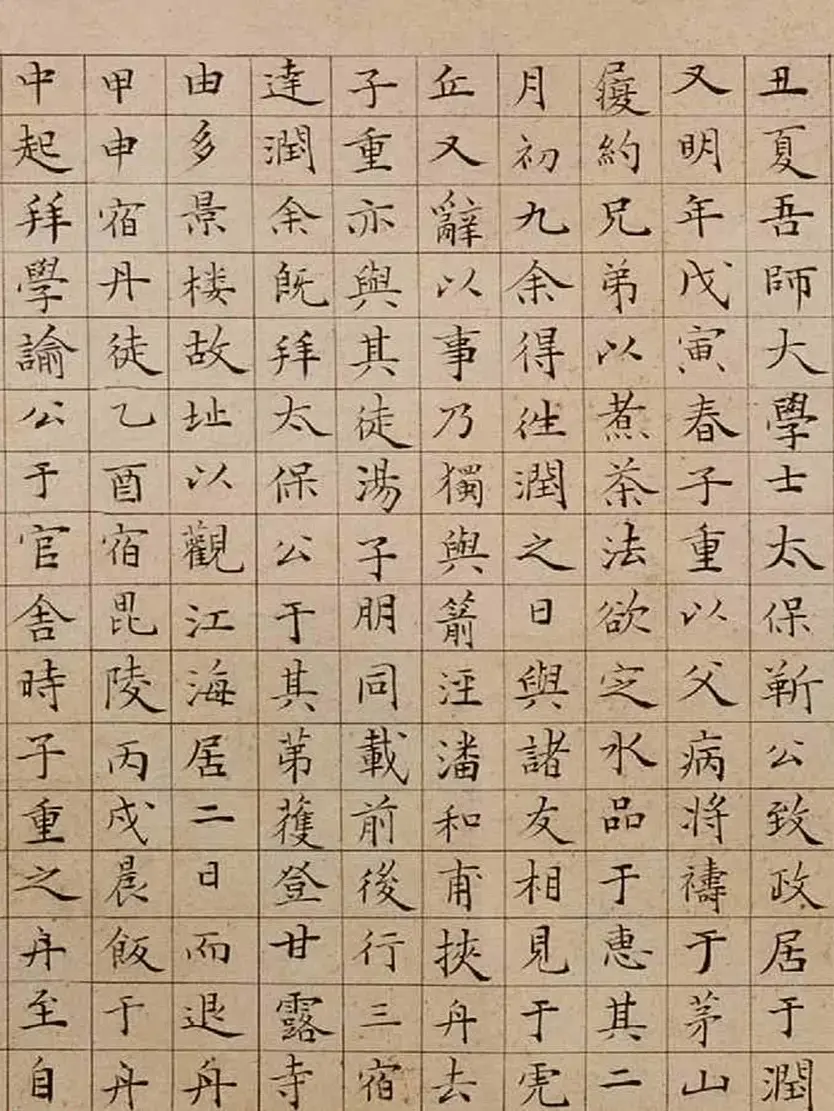 丑夏吾師大學士太保靳公致政居于潤
又明年戊寅春子重以父病將禱于茅山
履約兄弟以煮茶法欲定水品于惠其二
月初九余得徃潤之日與諸友相見于虎
丘又辭以事乃獨與箭涇潘和甫挾舟去
子重亦與其徒湯子朋同載前後行三宿
達潤余既拜太保公于其第獲登甘露寺
由多景楼故址以觀江海居二日而退舟
甲申宿丹徒乙酉宿毘陵丙戌晨飯于舟
中起拜學諭公于官舍時子重之舟至自